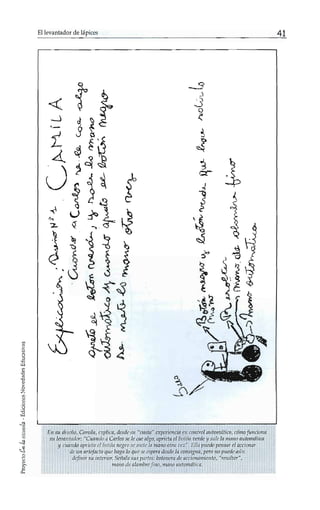 El levantador de lápices
41
Explicación: Diseño Nº 1 CAMILA
Cuando a Carlos se le cae algo
apreta el botón verde, y sale la mano
automática y cuando apreta el botón negro
se mete la mano otra vez
Botón negro y botón verde que hace subir la
mano
Resolter
mano de alambre fino
mano automática
En su diseño, Camila, explica, desde su "vasta" experiencia en control automático, cómo funciona
su levantador: "Cuando a Carlos se le cae algo, aprieta el botón verde y sale la mano automática
y cuando aprieta el botón negro se mete la mano otra vez". Ella puede pensar el accionar
de un artefacto que haga lo que se espera desde la consigna, pero no puede aún
definir su interior. Señala sus partes: botonera de accionamiento, "resolter",
mano de alambre fino, mano automática.
Proyecto En la escuela - Ediciones Novedades Educativas